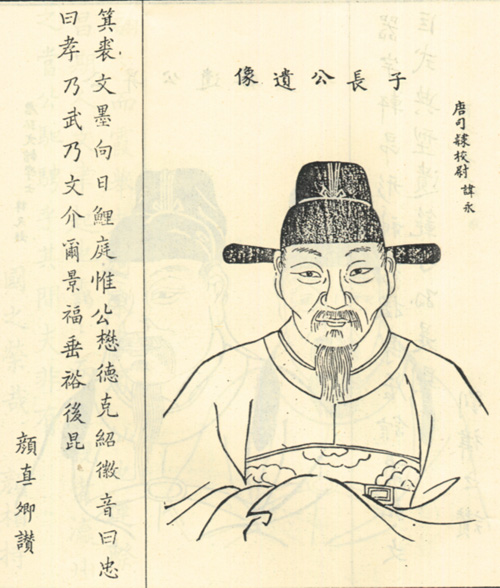 唐司隸校尉 諱永
子長公遺像
箕裘文墨向日鯉庭惟公懋德克紹徽音曰忠
曰孝乃武乃文介爾景福垂裕後昆
顏真卿讃